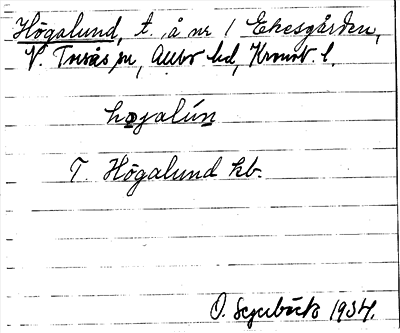 Högalund, t. å nr 1 Ekesgården,
V. Torsås sn, Allbo hd, Kronob. l.
høgalún
T. Högalund kb.
O. 1934.